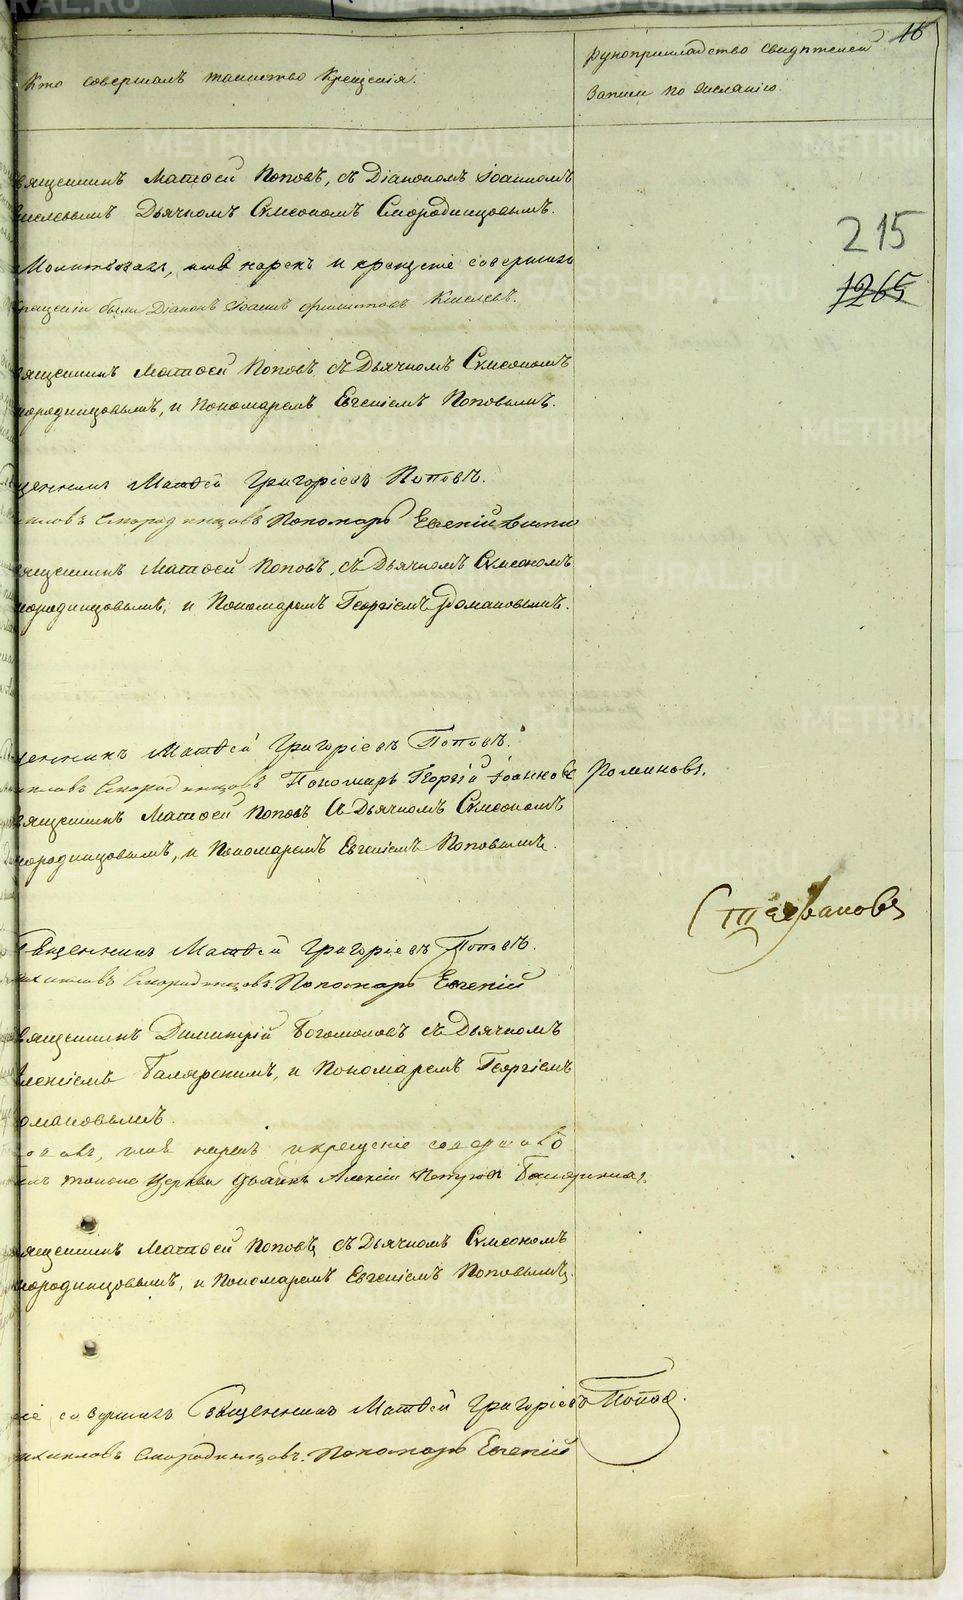 16
Кто совершалъ таинство Крещенія.
рукоприкладство свидѣтелей
записи по желанію.
вященникъ Матѳей Поповъ, съ Діакономъ Іоанномъ
иселевымъ Дьячкомъ Симеономъ Смородинцовымъ.
215
1265
Молитвовалъ, имя нарекъ и крещеніе совершилъ
рещеніи были Діаконъ Іоаннъ Киселевъ.
вященникъ Матѳей Поповъ, съ Дьячкомъ Симеономъ
мородинцовымъ, и Пономаремъ Евгеніемъ Поповымъ.
щенникъ Матѳей Григоріевъ Поповъ.
Смородинцовъ Пономарь Евгеній
вященникъ Матѳей Поповъ, съ Дьячкомъ Симеономъ
мородинцовымъ, и Пономаремъ Георгіемъ Романовымъ.
щенникъ Матѳей Григоріевъ Поповъ.
Смородинцовъ Пономарь Георгій Іоанновъ Романовъ.
вященникъ Матѳей Поповъ съ Дьячкомъ Симеономъ
мородинцовымъ, и Пономаремъ Евгеніемъ Поповымъ.
Священникъ Матѳей Григоріевъ Поповъ.
Смородинцовъ. Пономарь Евгеній
вященникъ Димитрій Богомоловъ съ Дьячкомъ
лексіемъ Башарскимъ, и Пономаремъ Георгіемъ
омановымъ.
имя нарекъ и крещеніе совершалъ
тоиже церкви дьячекъ Алексій Петровъ
вященникъ Матѳей Поповъ, съ Дьячкомъ Симеономъ
мородинцовымъ, и Пономаремъ Евгеніемъ Поповымъ.
ніе совершилъ Священникъ Матѳей Григоріевъ Попов.
Смородинцовъ. Пономарь Евгеній